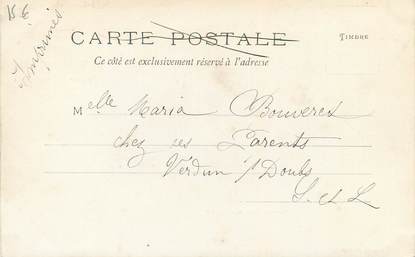 15 c
Imprimés
CARTE POSTALE
TIMBRE
Ce côté est exclusivement réservé à l'adresse
Melle Maria Bouveret
chez ses Parents
Verdun s/Doubs
S. et L